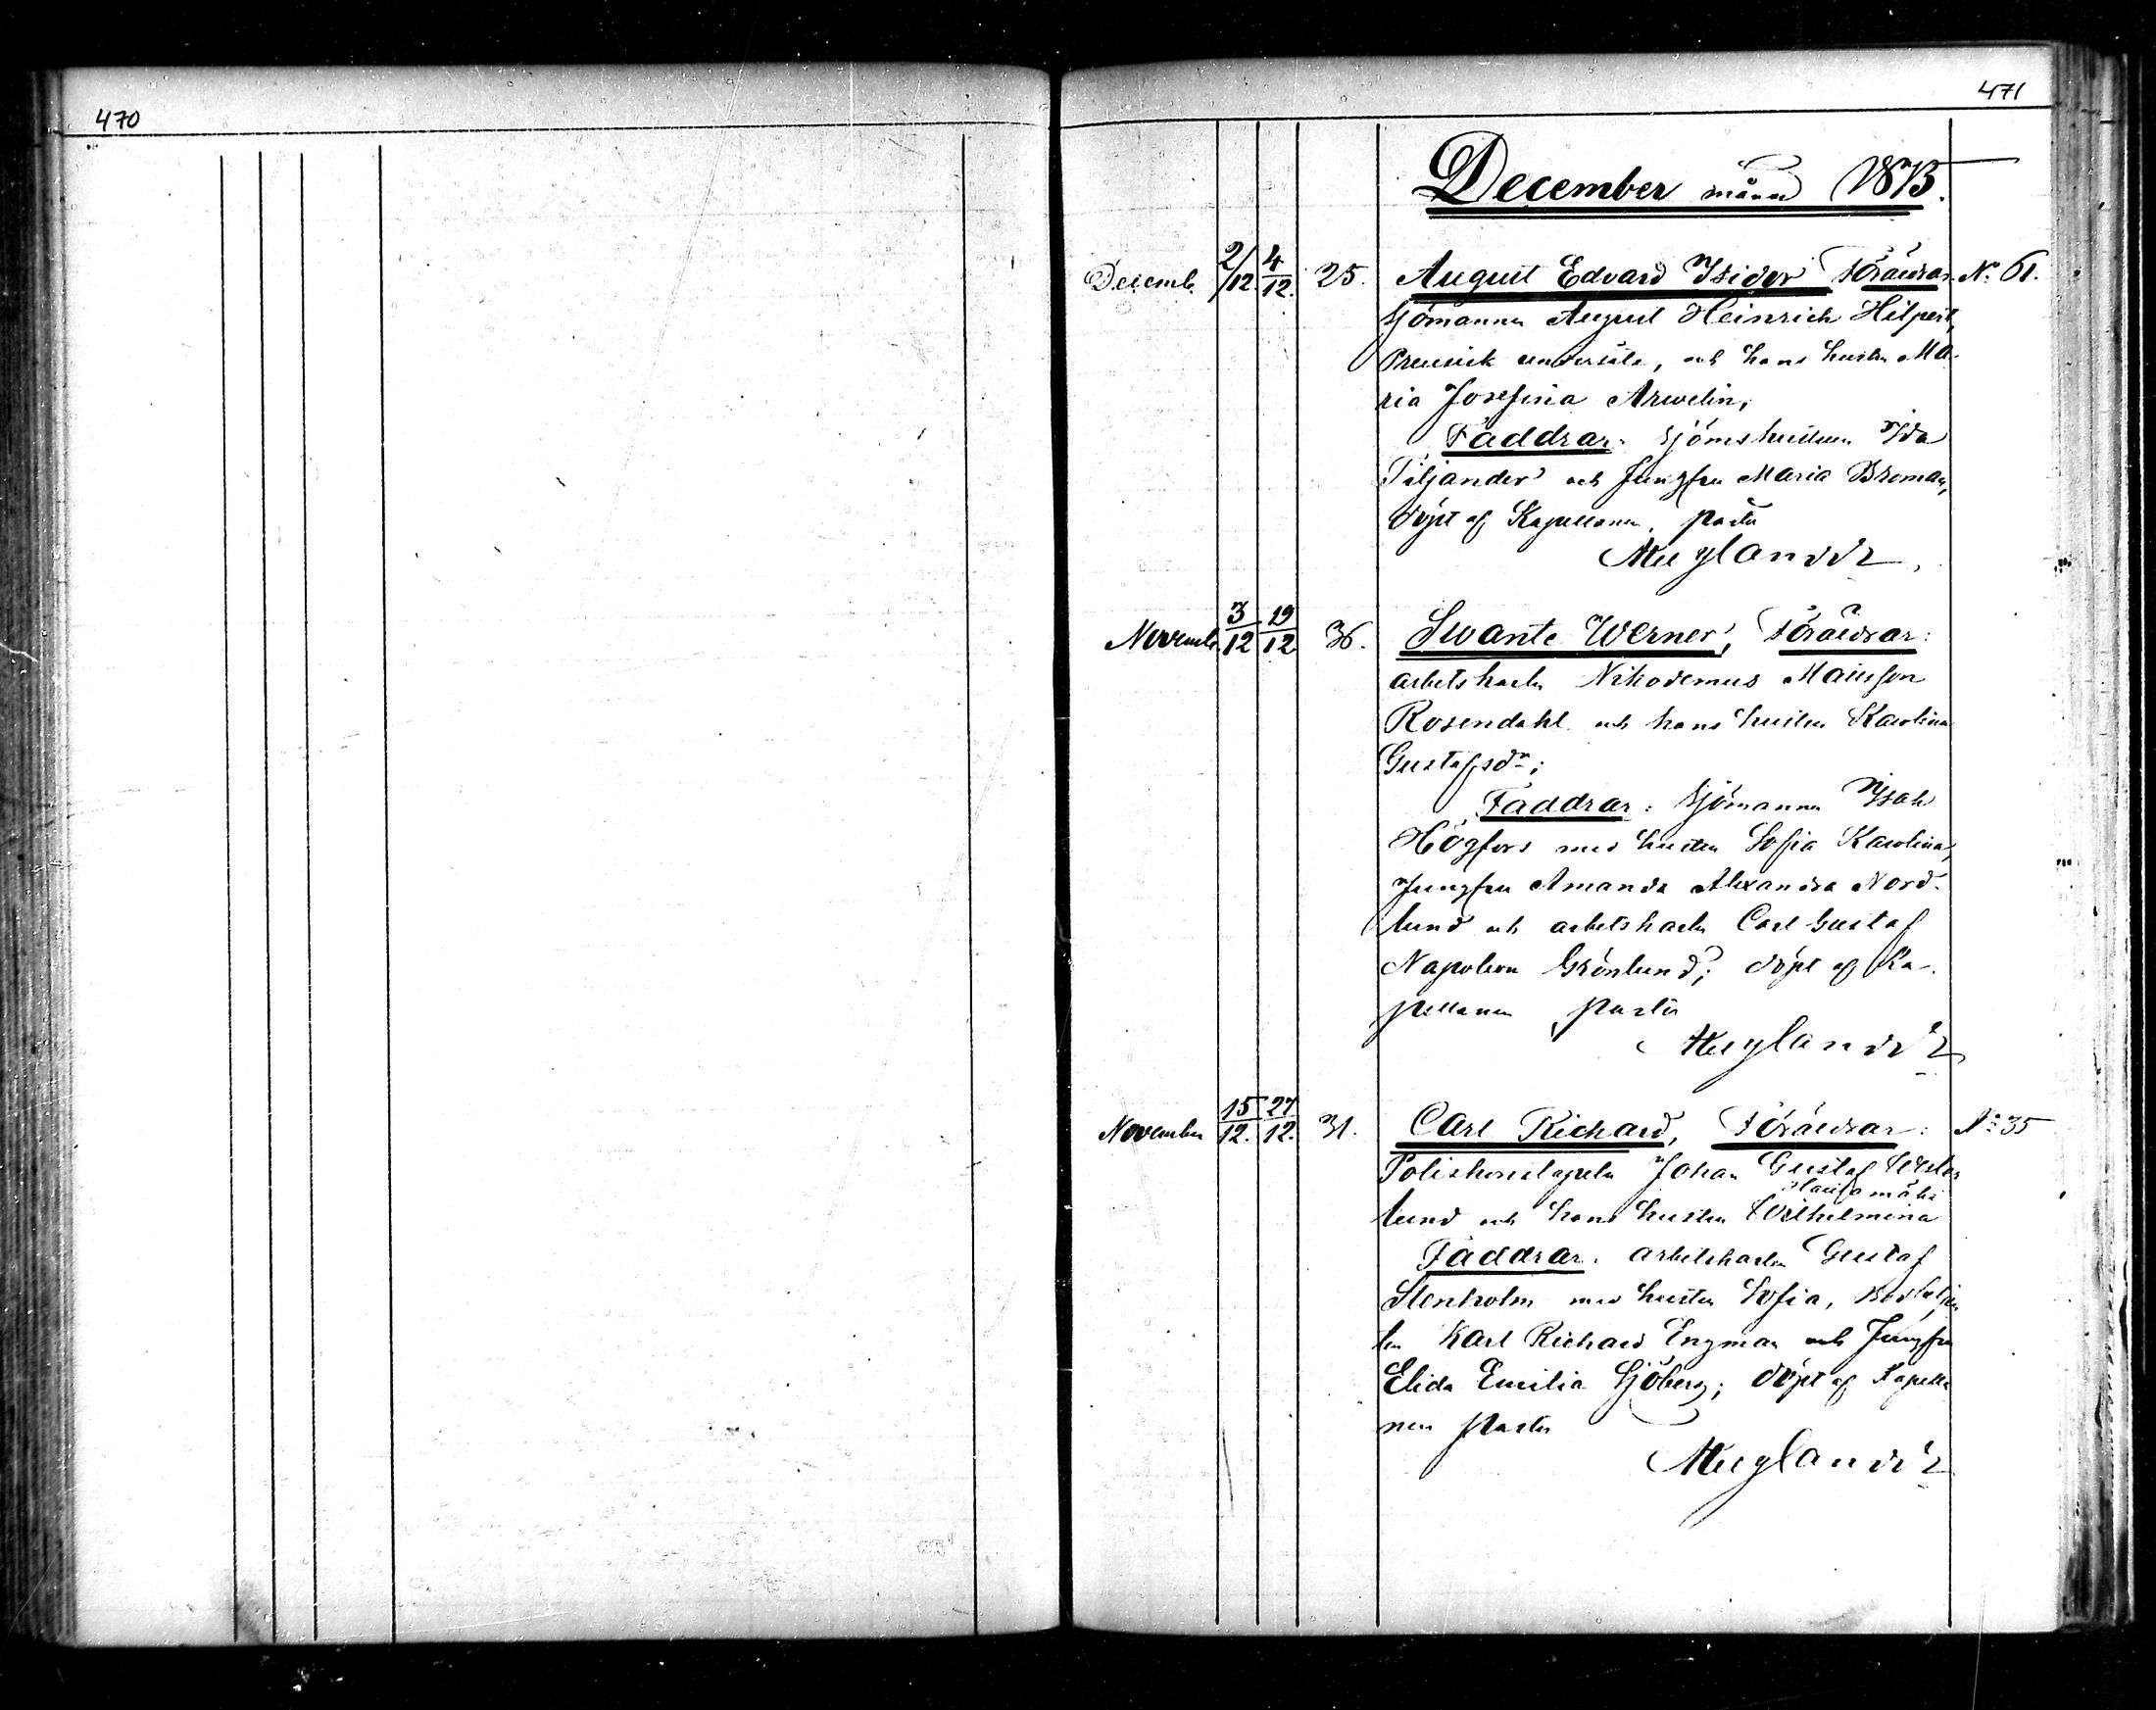 470
471
December månad 1873.
Decemb. 2/12. 4/12. 25. August Edvard Isidor Föräldrar No 61.
Sjömannen August Heinrich Hilpert,
Preussisk undersåte, och hans hustru Ma-
ria Josefina Arwelin;
Faddrar: Sjömshustrun Ida
Tiljander och Jungfru Maria Broman,
döpt af Kapellanen, pastor
Novemb. 3/12 19/12 36. Swante Werner, Föräldrar:
arbetskarlen Nikodemus
Rosendahl och hans hustru Karolina
Gustafsdr;
Faddrar: Sjömannen Isak
Högfors med hustru Sofia Karolina,
Jungfru Amanda Alexandra Nord-
lund och arbetskarlen Carl Gustaf
Napoleon Grönlund; döpt af Ka-
pellanen pastor
November 15/12. 27/12. 31. Carl Richard, Föräldrar: No 35
Poliskonstapeln Johan Gustaf Wester
lund och hans hustru Wilhelmina
Faddrar. arbetskarlen Gustaf
Stenholm med hustru Sofia,
Karl Richard Engman och Jungfru
Elida Emilia Sjöberg; döpt af Kapella
nen pastor